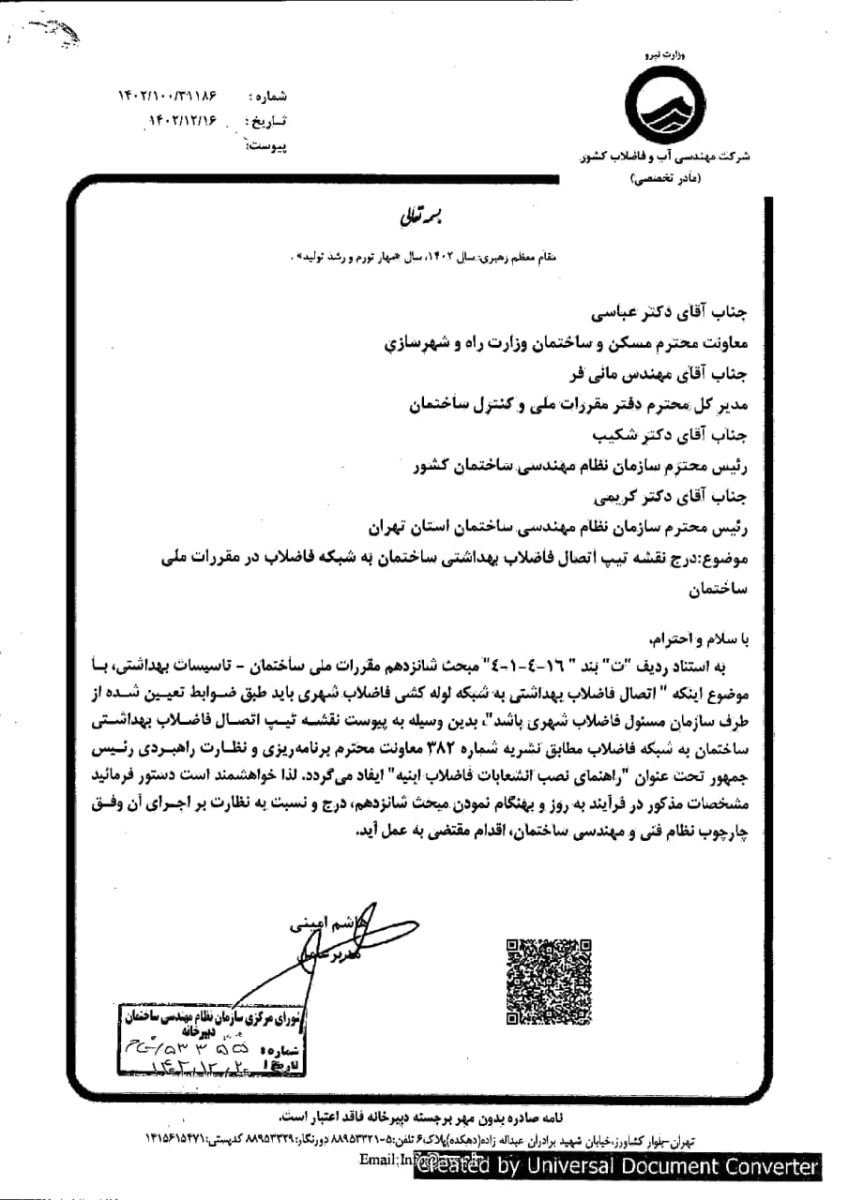 وزارت نیرو
شرکت مهندسی آب و فاضلاب کشور
(مادر تخصصی)
شماره : ۱۴۰۲/۱۰۰/۳۱۱۸۶
تاریخ : ۱۴۰۲/۱۲/۱۶
پیوست:
بسمه تعالی
مقام معظم رهبری: سال ۱۴۰۲، سال «مهار تورم و رشد تولید» .
جناب آقای دکتر عباسی
معاونت محترم مسکن و ساختمان وزارت راه و شهرسازی
جناب آقای مهندس مانی فر
مدیر کل محترم دفتر مقررات ملی و کنترل ساختمان
جناب آقای دکتر شکیب
رئیس محترم سازمان نظام مهندسی ساختمان کشور
جناب آقای دکتر کریمی
رئیس محترم سازمان نظام مهندسی ساختمان استان تهران
موضوع:درج نقشه تیپ اتصال فاضلاب بهداشتی ساختمان به شبکه فاضلاب در مقررات ملی
ساختمان
با سلام و احترام،
به استناد ردیف "ت" بند " ١٦-٤-١-٤" مبحث شانزدهم مقررات ملی ساختمان - تاسیسات بهداشتی، با
موضوع اینکه " اتصال فاضلاب بهداشتی به شبکه لوله کشی فاضلاب شهری باید طبق ضوابط تعیین شده از
طرف سازمان مسئول فاضلاب شهری باشد"، بدین وسیله به پیوست نقشه تیپ اتصال فاضلاب بهداشتی
ساختمان به شبکه فاضلاب مطابق نشریه شماره ۳۸۲ معاونت محترم برنامه‌ریزی و نظارت راهبردی رئیس
جمهور تحت عنوان "راهنمای نصب انشعابات فاضلاب ابنیه" ایفاد می‌گردد. لذا خواهشمند است دستور فرمائید
مشخصات مذکور در فرآیند به روز و بهنگام نمودن مبحث شانزدهم، درج و نسبت به نظارت بر اجرای آن وفق
چارچوب نظام فنی و مهندسی ساختمان، اقدام مقتضی به عمل آید.
هاشم امینی
مدیرعامل
شورای مرکزی سازمان نظام مهندسی ساختمان
دبیرخانه
شماره:
تاریخ:
نامه صادره بدون مهر برجسته دبیرخانه فاقد اعتبار است.
تهران-بلوار کشاورز،خیابان شهید برادران عبداله زاده(دهکده)پلاک۶ تلفن:۵-۸۸۹۵۳۳۲۱ دورنگار:۸۸۹۵۳۳۲۹ کدپستی:۱۴۱۵۶۱۵۴۷۱
Email:
Created by Universal Document Converter